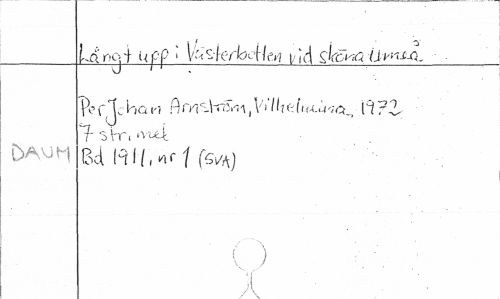 Långt upp i Västerbotten vid sköna Umeå
Per Johan Arnström, Vilhelmina, 1972
7 str, mel
DAUM Bd 1911, nr 1 (SVA)